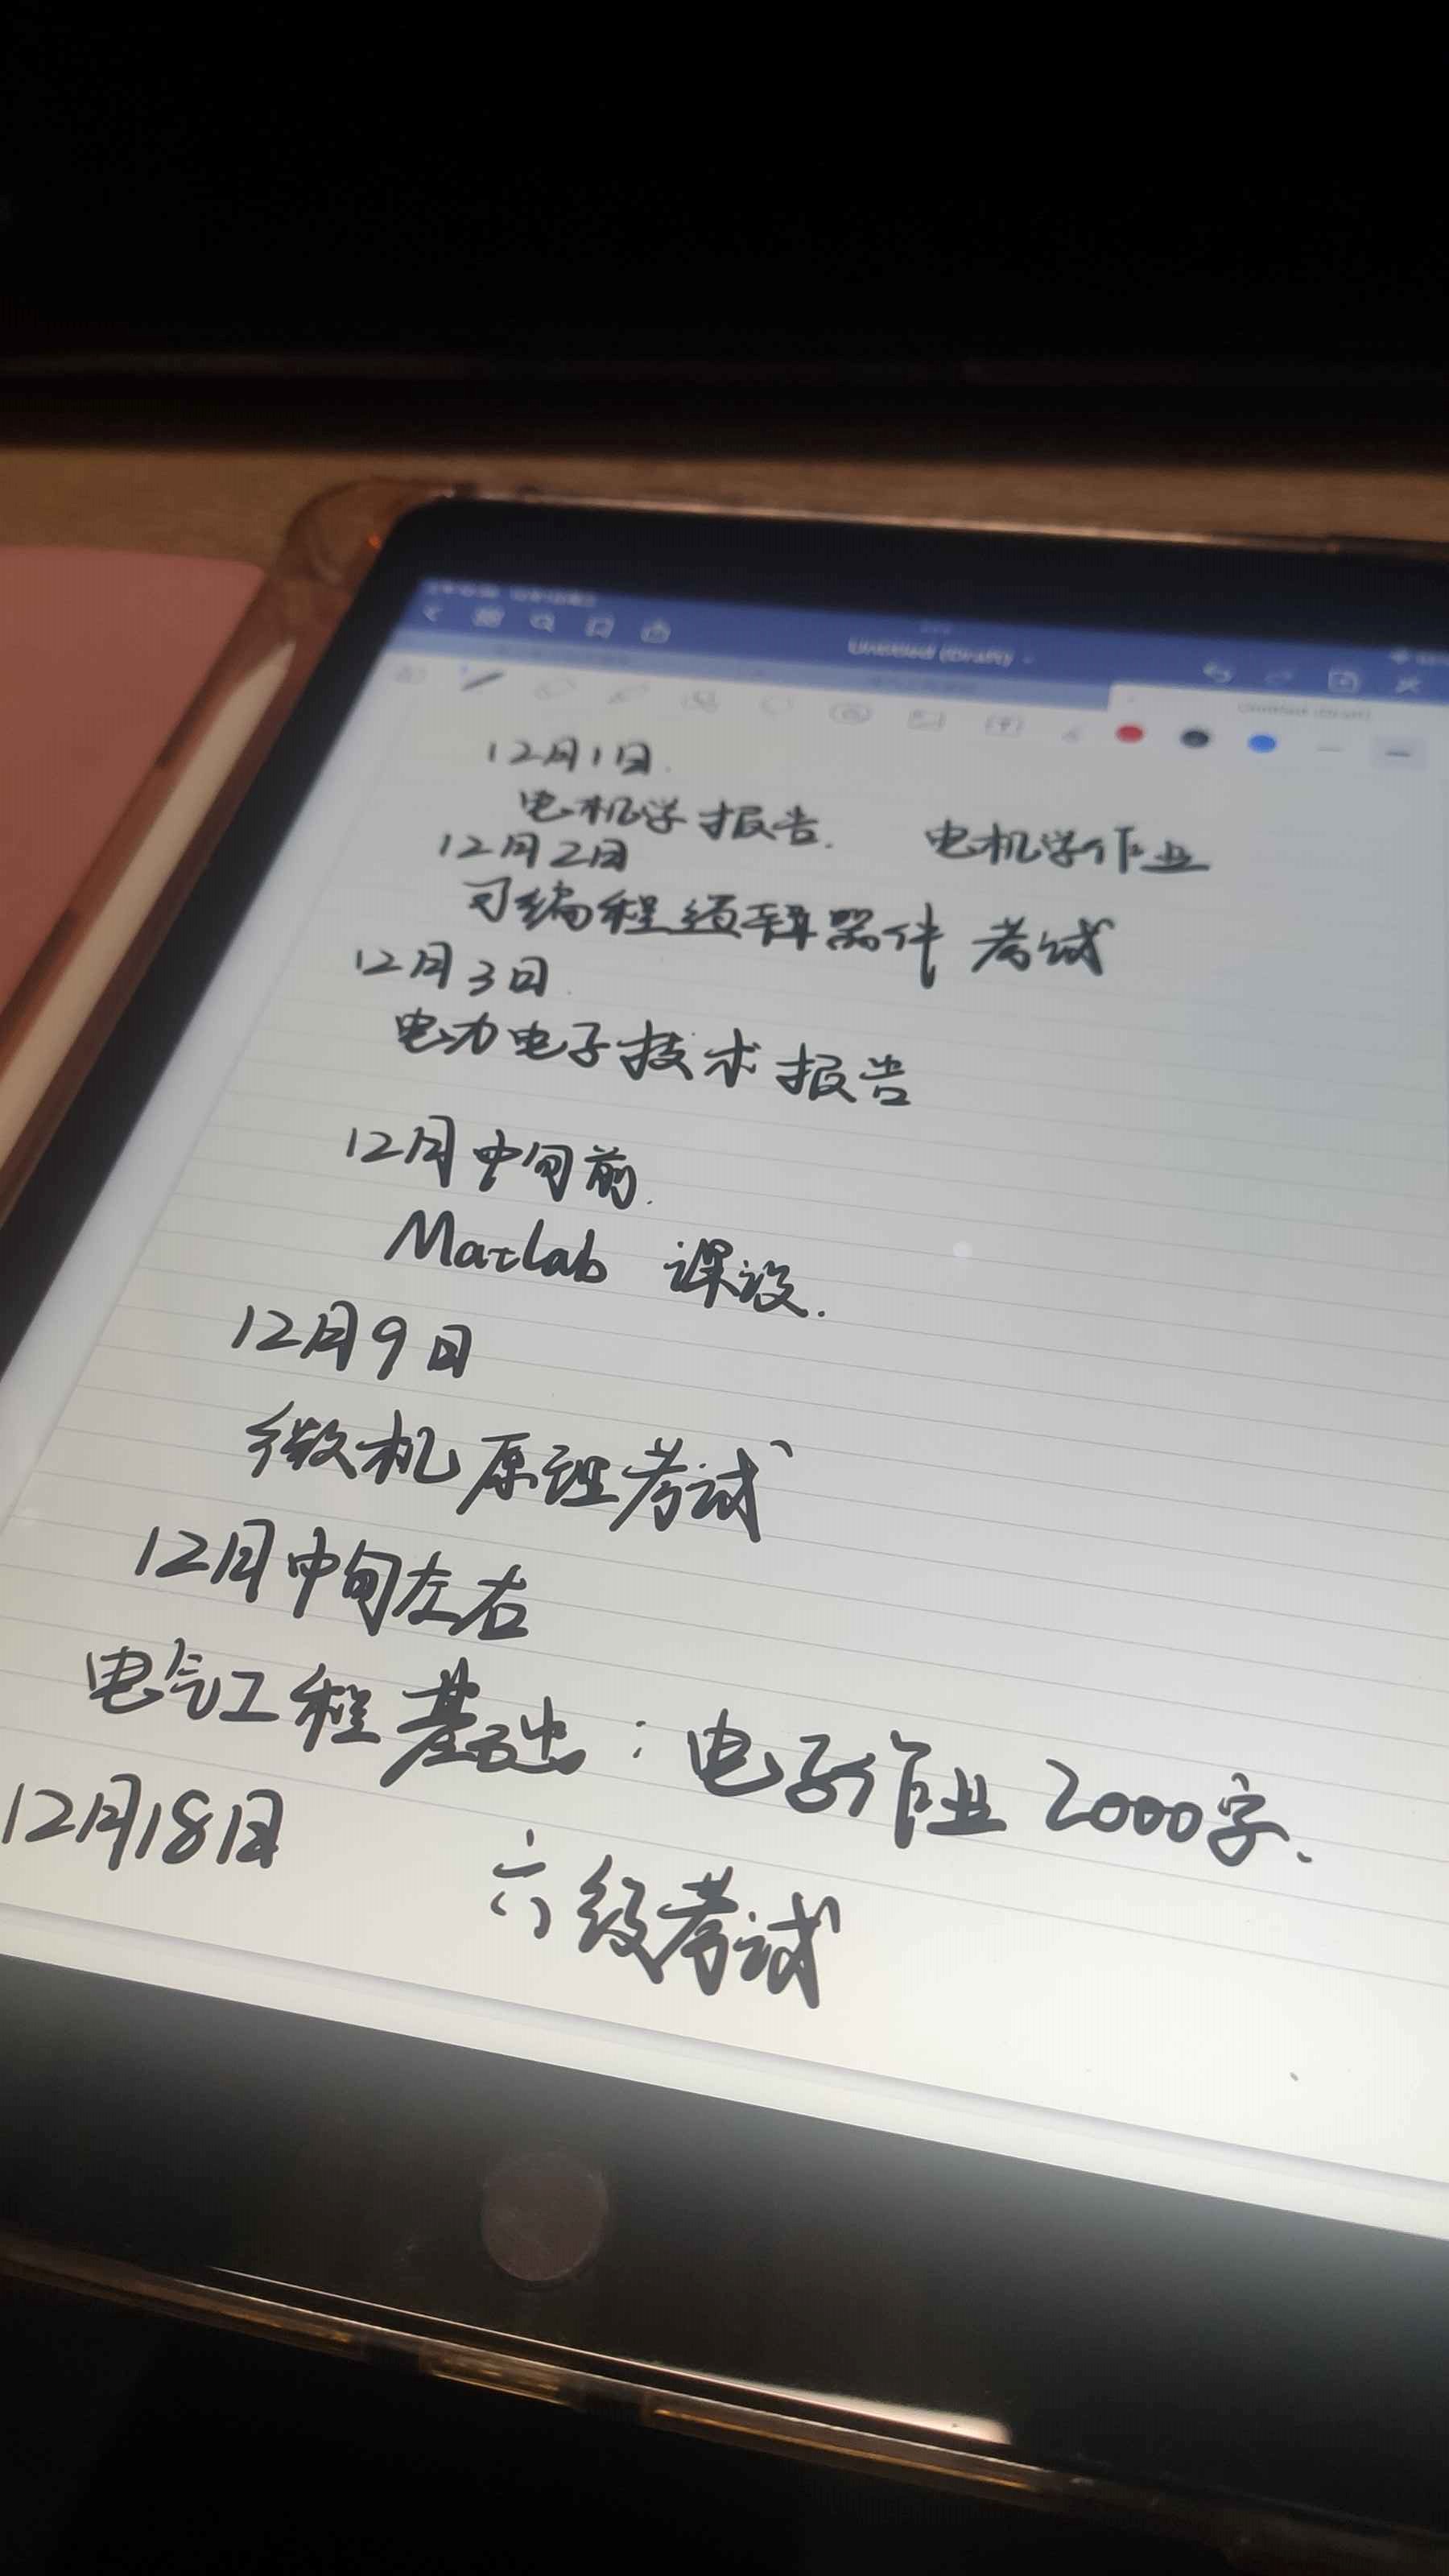 Untitled (Draft)
Untitled (Draft)
12月1日.
电机学报告. 电机学作业
12月2日
可编程逻辑器件 考试
12月3日.
电力电子技术报告
12月中旬前.
Matlab 课设.
12月9日
微机原理考试
12月中旬左右
电气工程基础:电子作业 2000字、
12月18日 六级考试